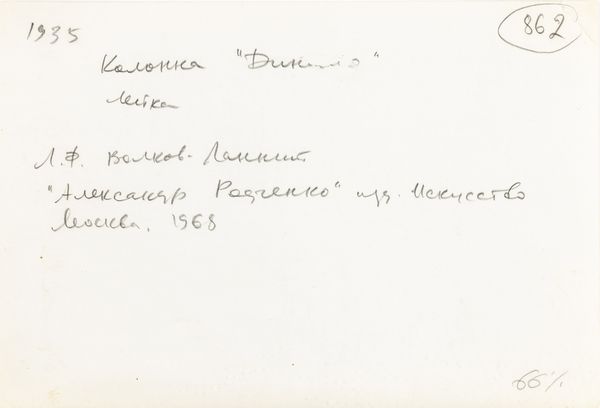 1935
862
Колонка "Динамо"
Лейка
Л.Ф. Волков-Ланнит
"Александр Родченко" изд. Искусство
Москва, 1968
66%